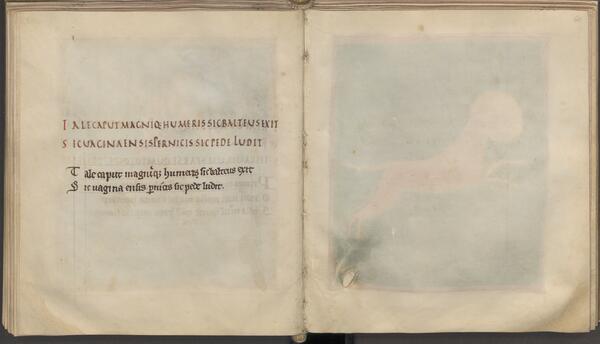 TALE CAPUT MAGNIQ· HUMERIS SIC BALTEUS EXIT
SIC VAGINA ENSIS PERNICIS SIC PEDE LUDIT
Tale caput magniq; humeris sic balteus exit
Sic vagina ensis pernicis sic pede ludit.